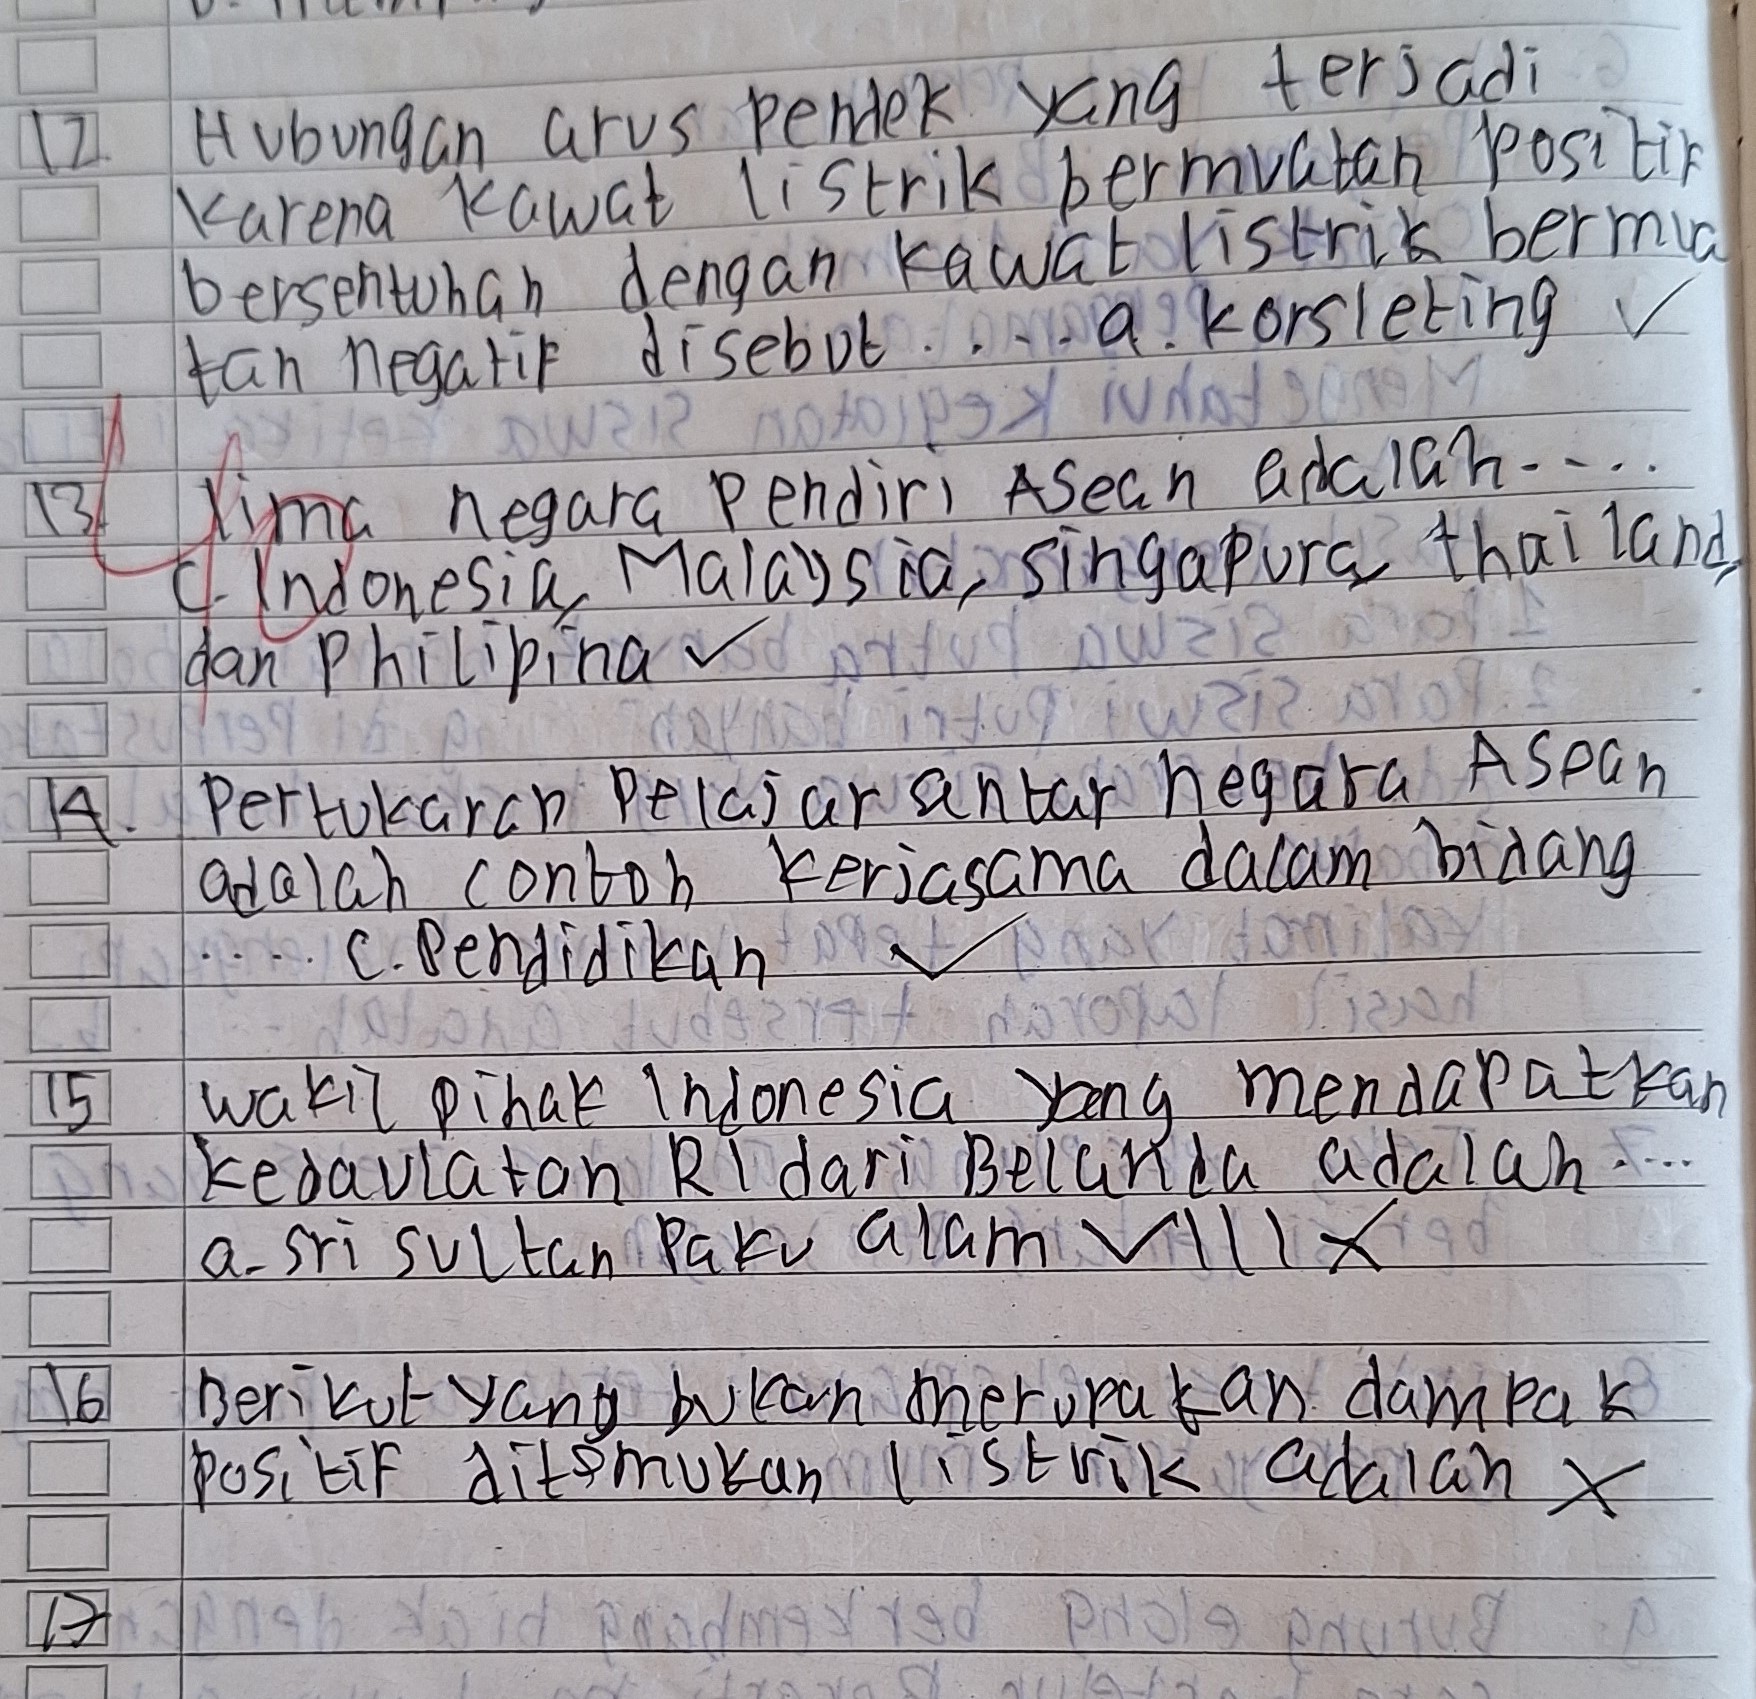 12. Hubungan arus pendek yang terjadi
karena kawat listrik bermuatan positif
bersentuhan dengan kawat listrik bermua
tan negatif disebut..... a. korsleting ✓
13. lima negara pendiri Asean adalah.....
c. Indonesia, Malaysia, singapura, thailand,
dan Philipina ✓
14. Pertukaran Pelajar antar negara Asean
adalah contoh kerjasama dalam bidang
..... c. Pendidikan ✓
15 wakil pihak Indonesia yang mendapatkan
kedaulatan RI dari Belanda adalah.....
a. sri sultan Paku alam VIII X
16 Berikut yang bukan merupakan dampak
positif ditemukan listrik adalah X
17